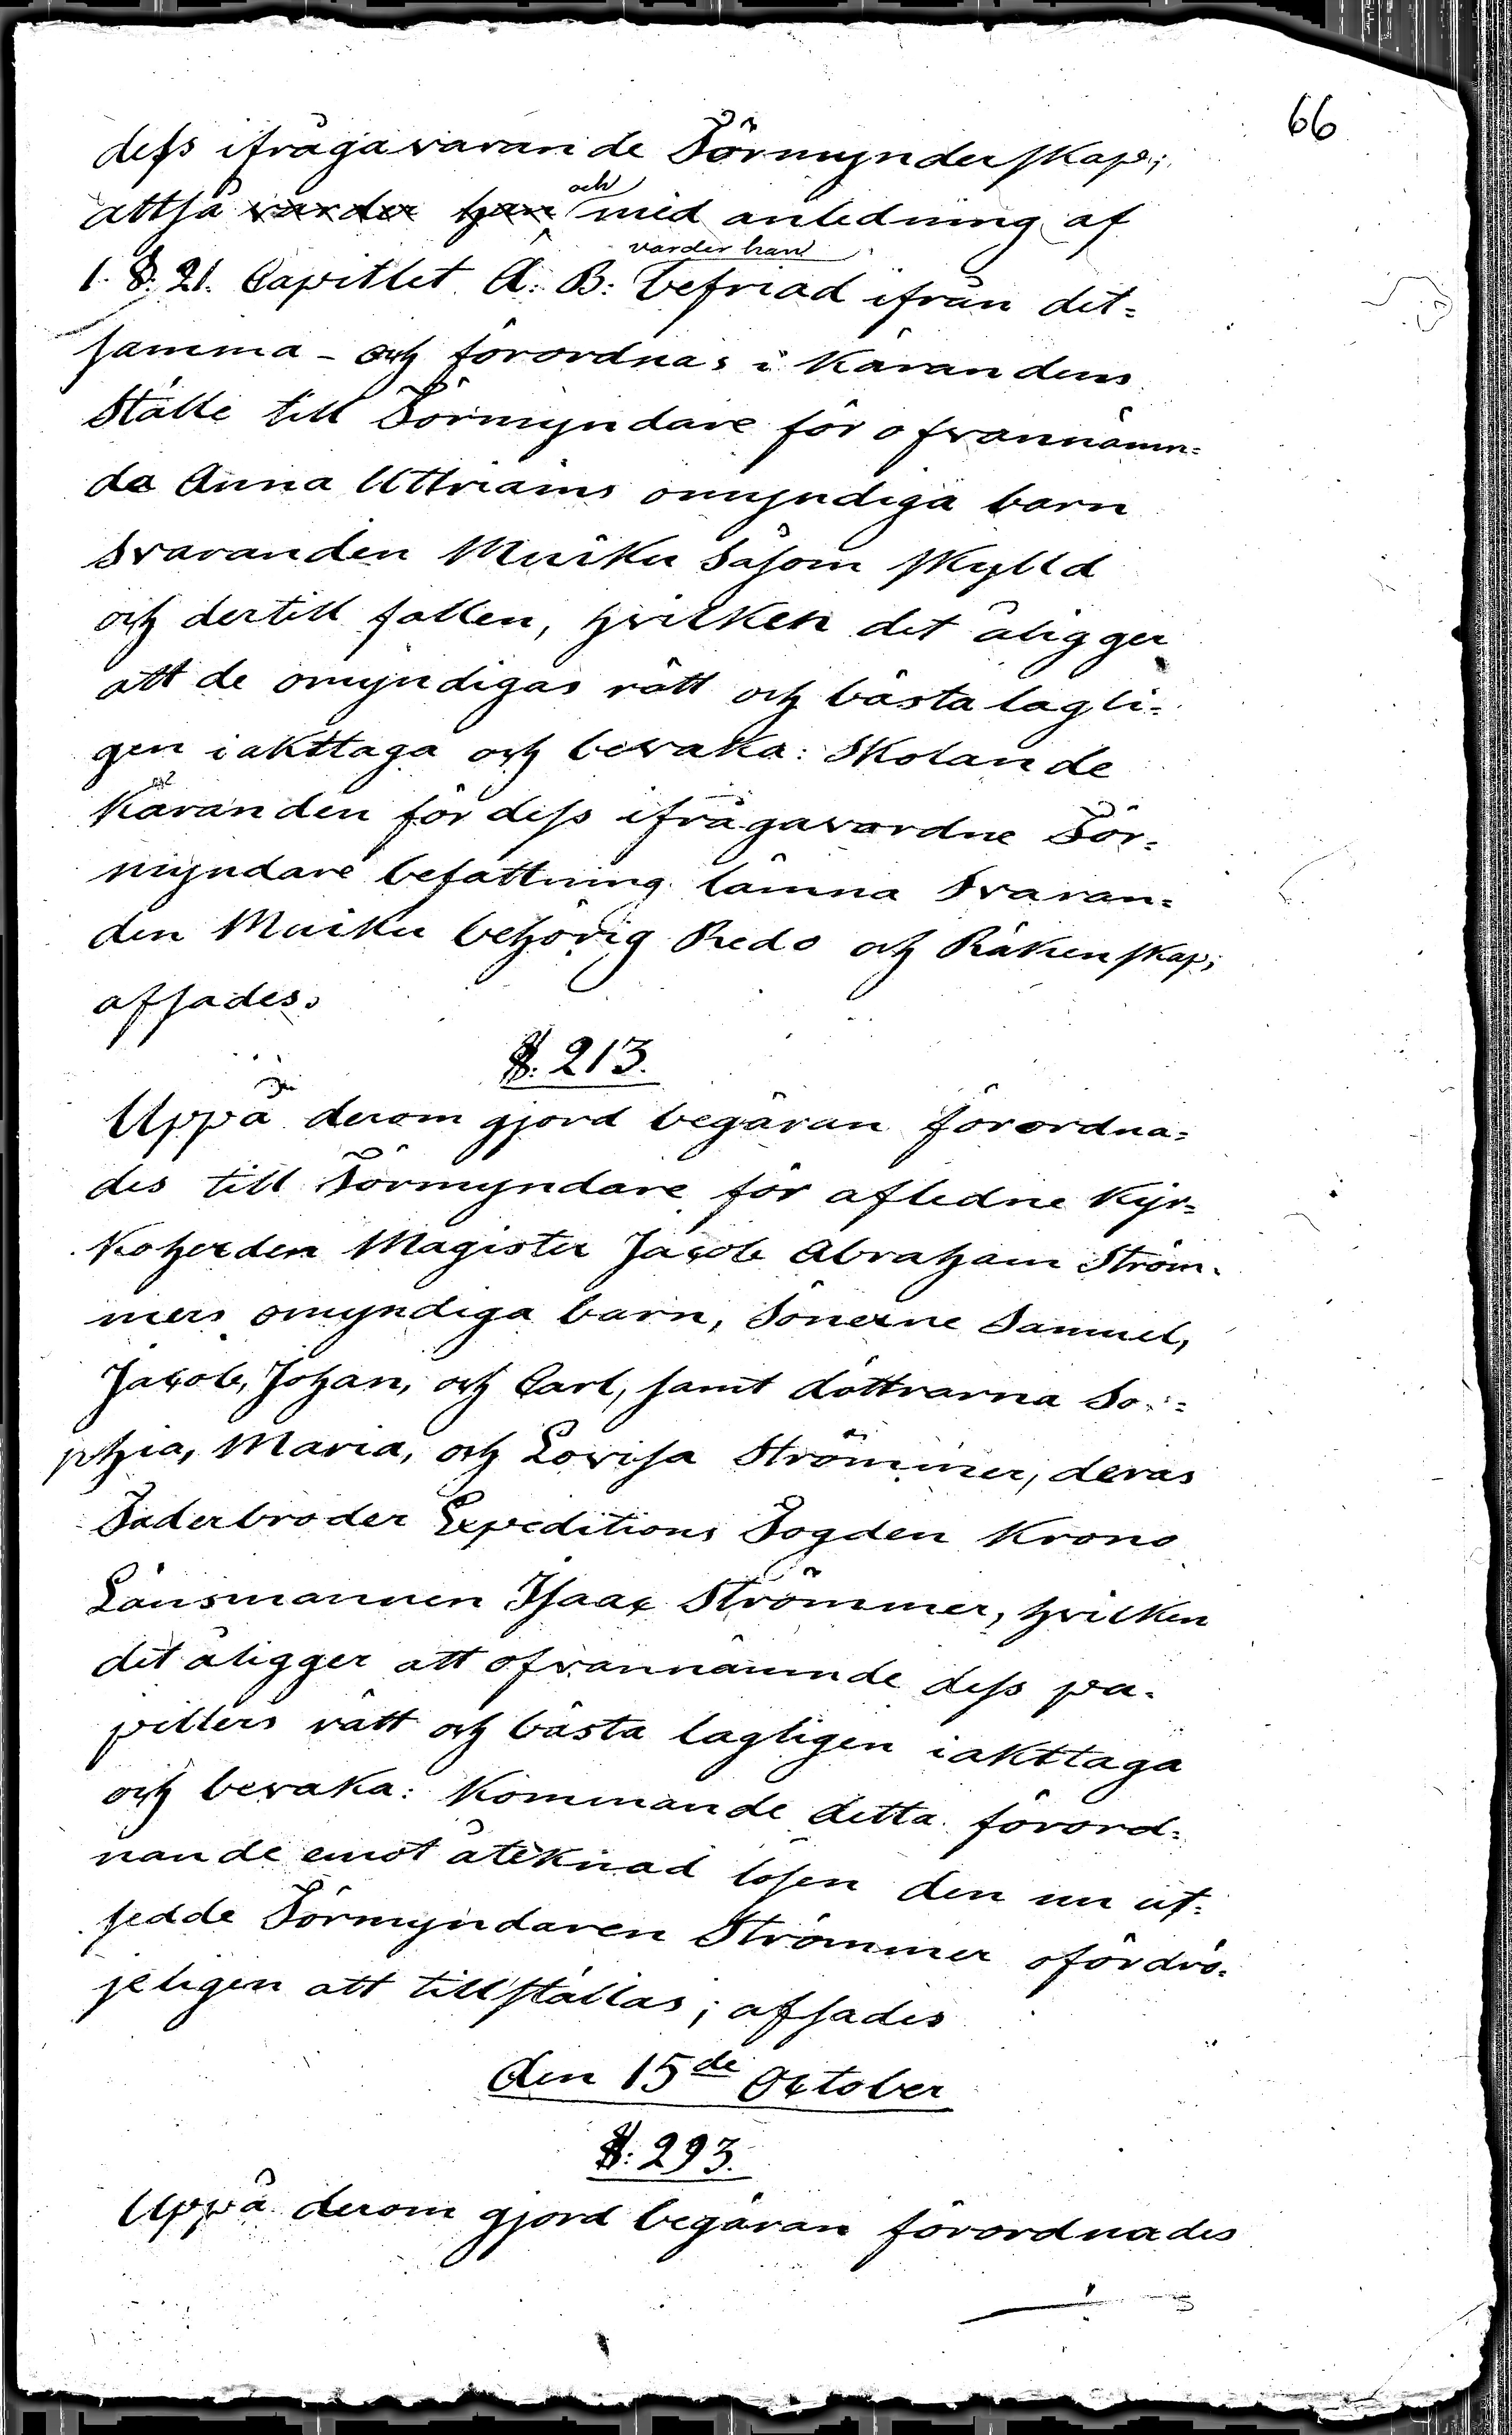 66
dess ifrågavarande Förmynderskap;
alltså varder han och med anledning af
varder han
1. §. 21. Capitlet Ä: B: befriad ifrån det=
samma – och förordnas i Kärandens
Ställe till Förmyndare för ofvannämn=
da Anna Uttriains omyndiga barn
Svaranden Muiku Såsom skylld
och dertill fallen, hvilken det åligger
att de omyndigas rätt och bästa lagli=
gen iakttaga och bevaka: Skolande
Käranden för dess ifrågavardne För=
myndare befattning lämna Svaran=
den Muiku behörig Redo och Räkenskap;
afsades.
§. 213.
Uppå derom gjord begäran förordna=
des till Förmyndare för aflidne Kyr=
koherden Magister Jacob Abraham Ström=
mers omyndiga barn, Sönerne Samuel,
Jacob, Johan, och Carl, samt döttrarna So=
phia, Maria, och Lovisa Strömmer, deras
Faderbroder Expeditions Fogden Krono
Länsmannen Isaac Strömmer, hvilken
det åligger att ofvannämnde dess pu=
pillers rätt och bästa lagligen iakttaga
och bevaka: Kommande detta förord=
nande emot åteknad lösen den nu ut=
sedde Förmyndaren Strömmer ofördrö=
jeligen att tillställas; afsades
den 15de October
§: 293.
Uppå derom gjord begäran förordnades